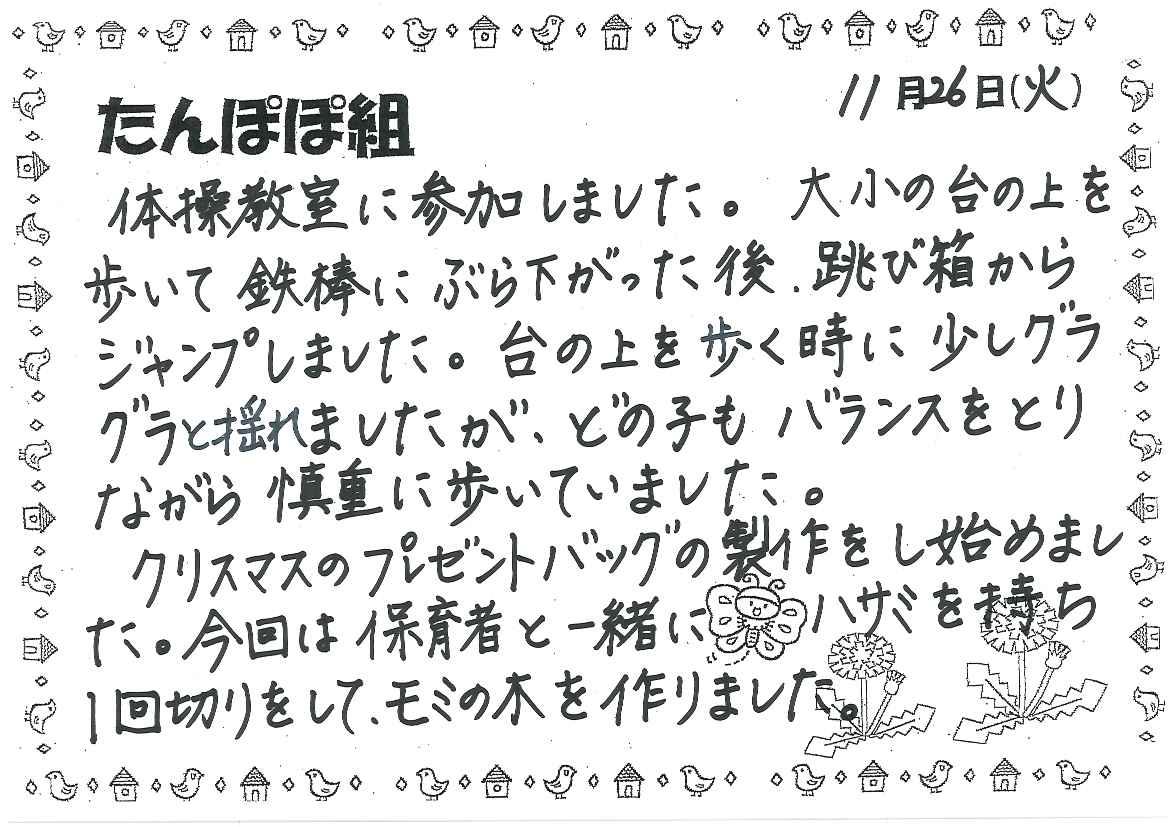 11月26日(火)
たんぽぽ組
体操教室に参加しました。大小の台の上を
歩いて鉄棒にぶら下がった後、跳び箱から
ジャンプしました。台の上を歩く時に少しグラ
グラと揺れましたが、どの子もバランスをとり
ながら慎重に歩いていました。
クリスマスのプレゼントバッグの製作をし始めまし
た。今回は保育者と一緒にハサミを持ち
1回切りをして、モミの木を作りました。